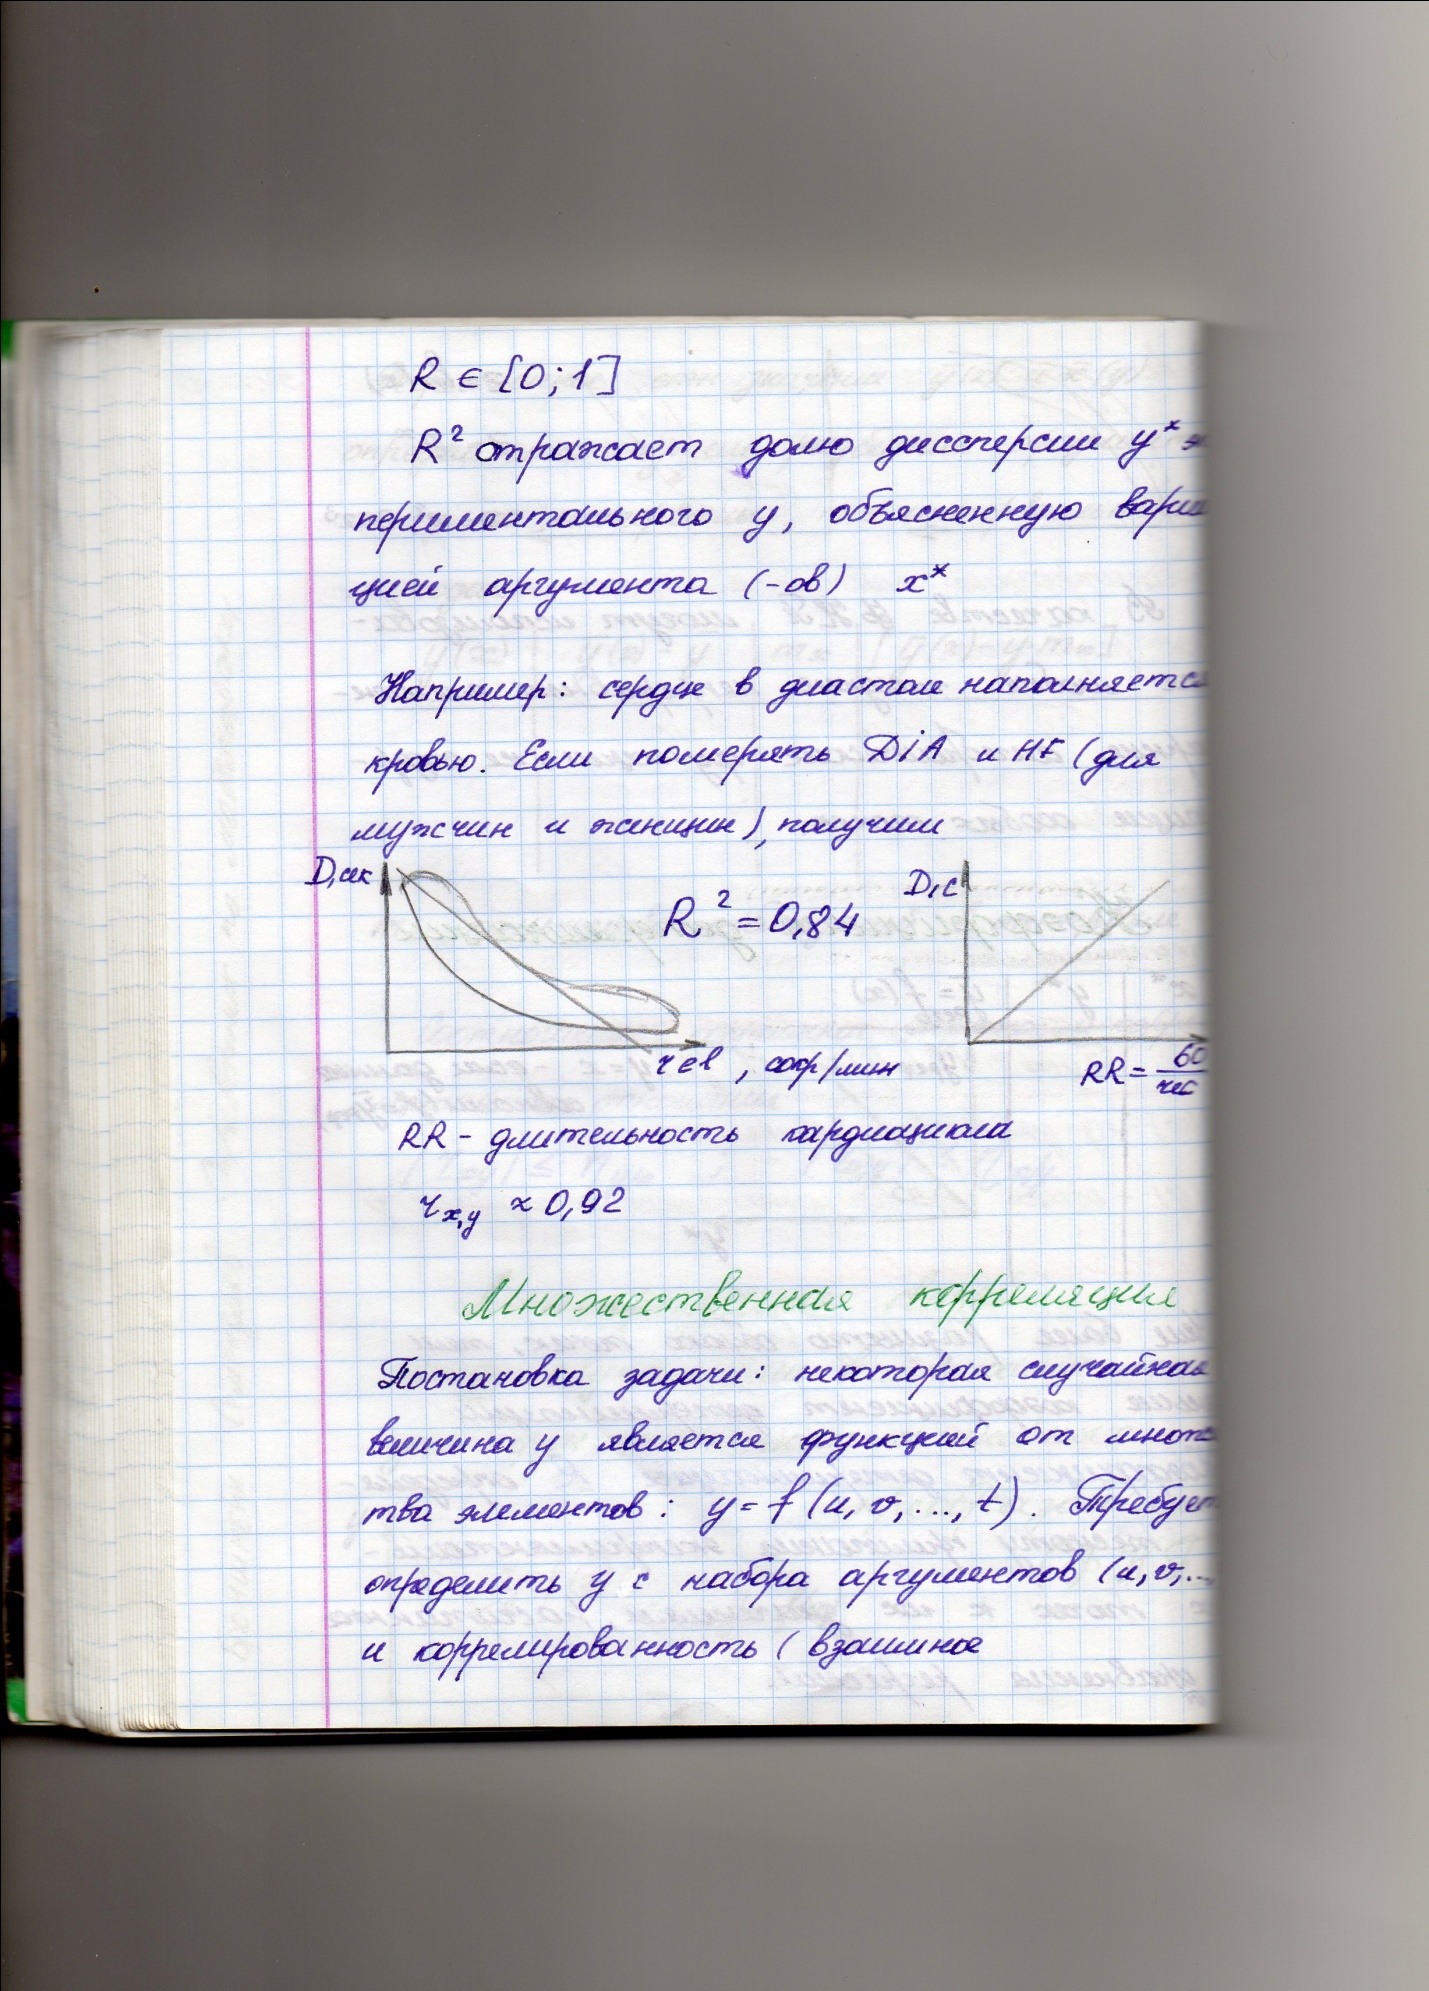 R ∈ [0;1]
R² отражает долю диссперсии y* э
периментального y, объясненную вариа
цией аргумента (-ов) x*
Например: сердце в диастоле наполняется
кровью. Если померять DiA и HF (для
мужчин и женщин), получим
D, сек
R² = 0,84
D, с
чсс , сокр/мин
RR = 60/чсс
RR - длительность кардиоцикла
r x,y ≈ 0,92
Множественная корреляция
Постановка задачи: некоторая случайная
величина y является функцией от множес
тва элементов: y = f (u, v, ..., t). Требует
определить y с набора аргументов (u, v, ...,
и коррелированность (взаимное